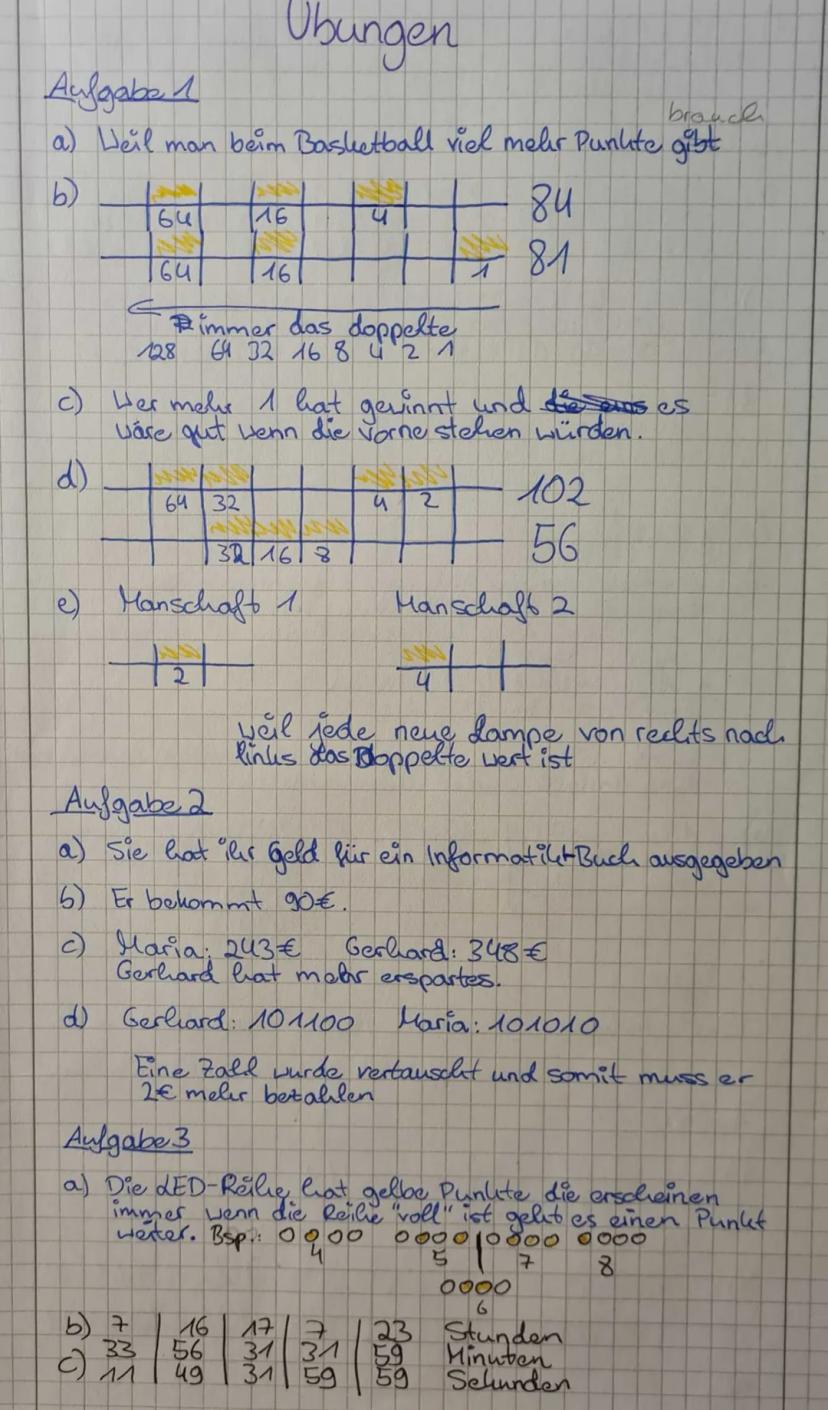 Übungen
Aufgabe 1
brauch
a) Weil man beim Basketball viel mehr Punkte gibt
b) 64 16 4 84
64 16 1 81
immer das doppelte
128 64 32 16 8 4 2 1
c) Wer mehr 1 hat gewinnt und es
wäre gut wenn die vorne stehen würden.
d) 64 32 4 2 102
32 16 8 56
e) Manschaft 1 Manschaft 2
2 4
weil jede neue Lampe von rechts nach
links das Doppelte wert ist
Aufgabe 2
a) Sie hat ihr Geld für ein Informatik-Buch ausgegeben
b) Er bekommt 90€.
c) Maria: 243€ Gerhard: 348€
Gerhard hat mehr erspartes.
d) Gerhard: 101100 Maria: 101010
Eine Zahl wurde vertauscht und somit muss er
2€ mehr bezahlen
Aufgabe 3
a) Die LED-Reihe hat gelbe Punkte die erscheinen
immer wenn die Reihe "voll" ist geht es einen Punkt
weiter. Bsp.: 0000 0000 | 0000 0000
4 5 7 8
0000
6
b) 7 | 16 | 17 | 7 | 23 Stunden
33 | 56 | 31 | 31 | 59 Minuten
c) 11 | 49 | 31 | 59 | 59 Sekunden